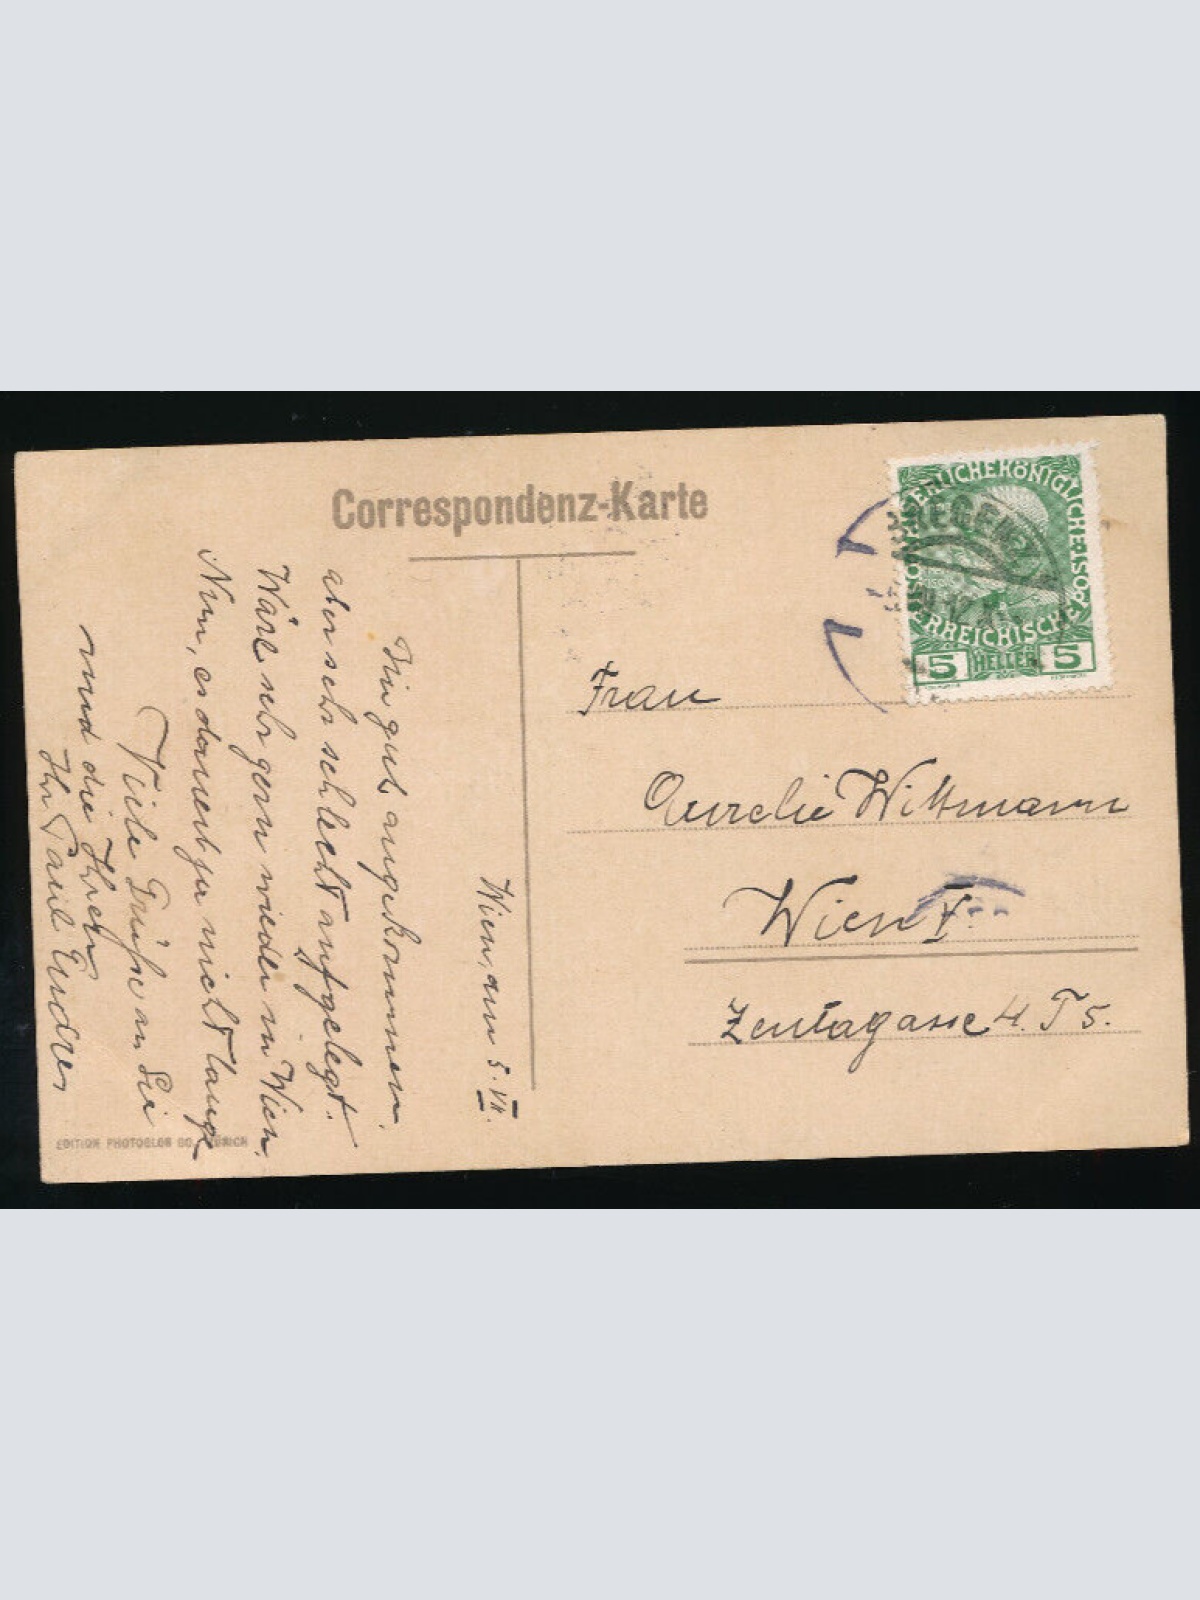 Correspondenz-Karte
KAISERLICHE KÖNIGLICHE ÖSTERREICHISCHE
BREGENZ
5 HELLER 5
Wien, am 5. VII.
Bin gut angekommen,
aber sehr schlecht aufgelegt.
Wäre sehr gern wieder in Wien.
Nun, es dauert ja nicht lange
Viele Grüße an Sie
und die Ihren
Ihr Paul Endres
Frau
Aurelie Wittmann
Wien V.
Zentagasse 4. T 5.
EDITION PHOTOGLOB CO. ZÜRICH